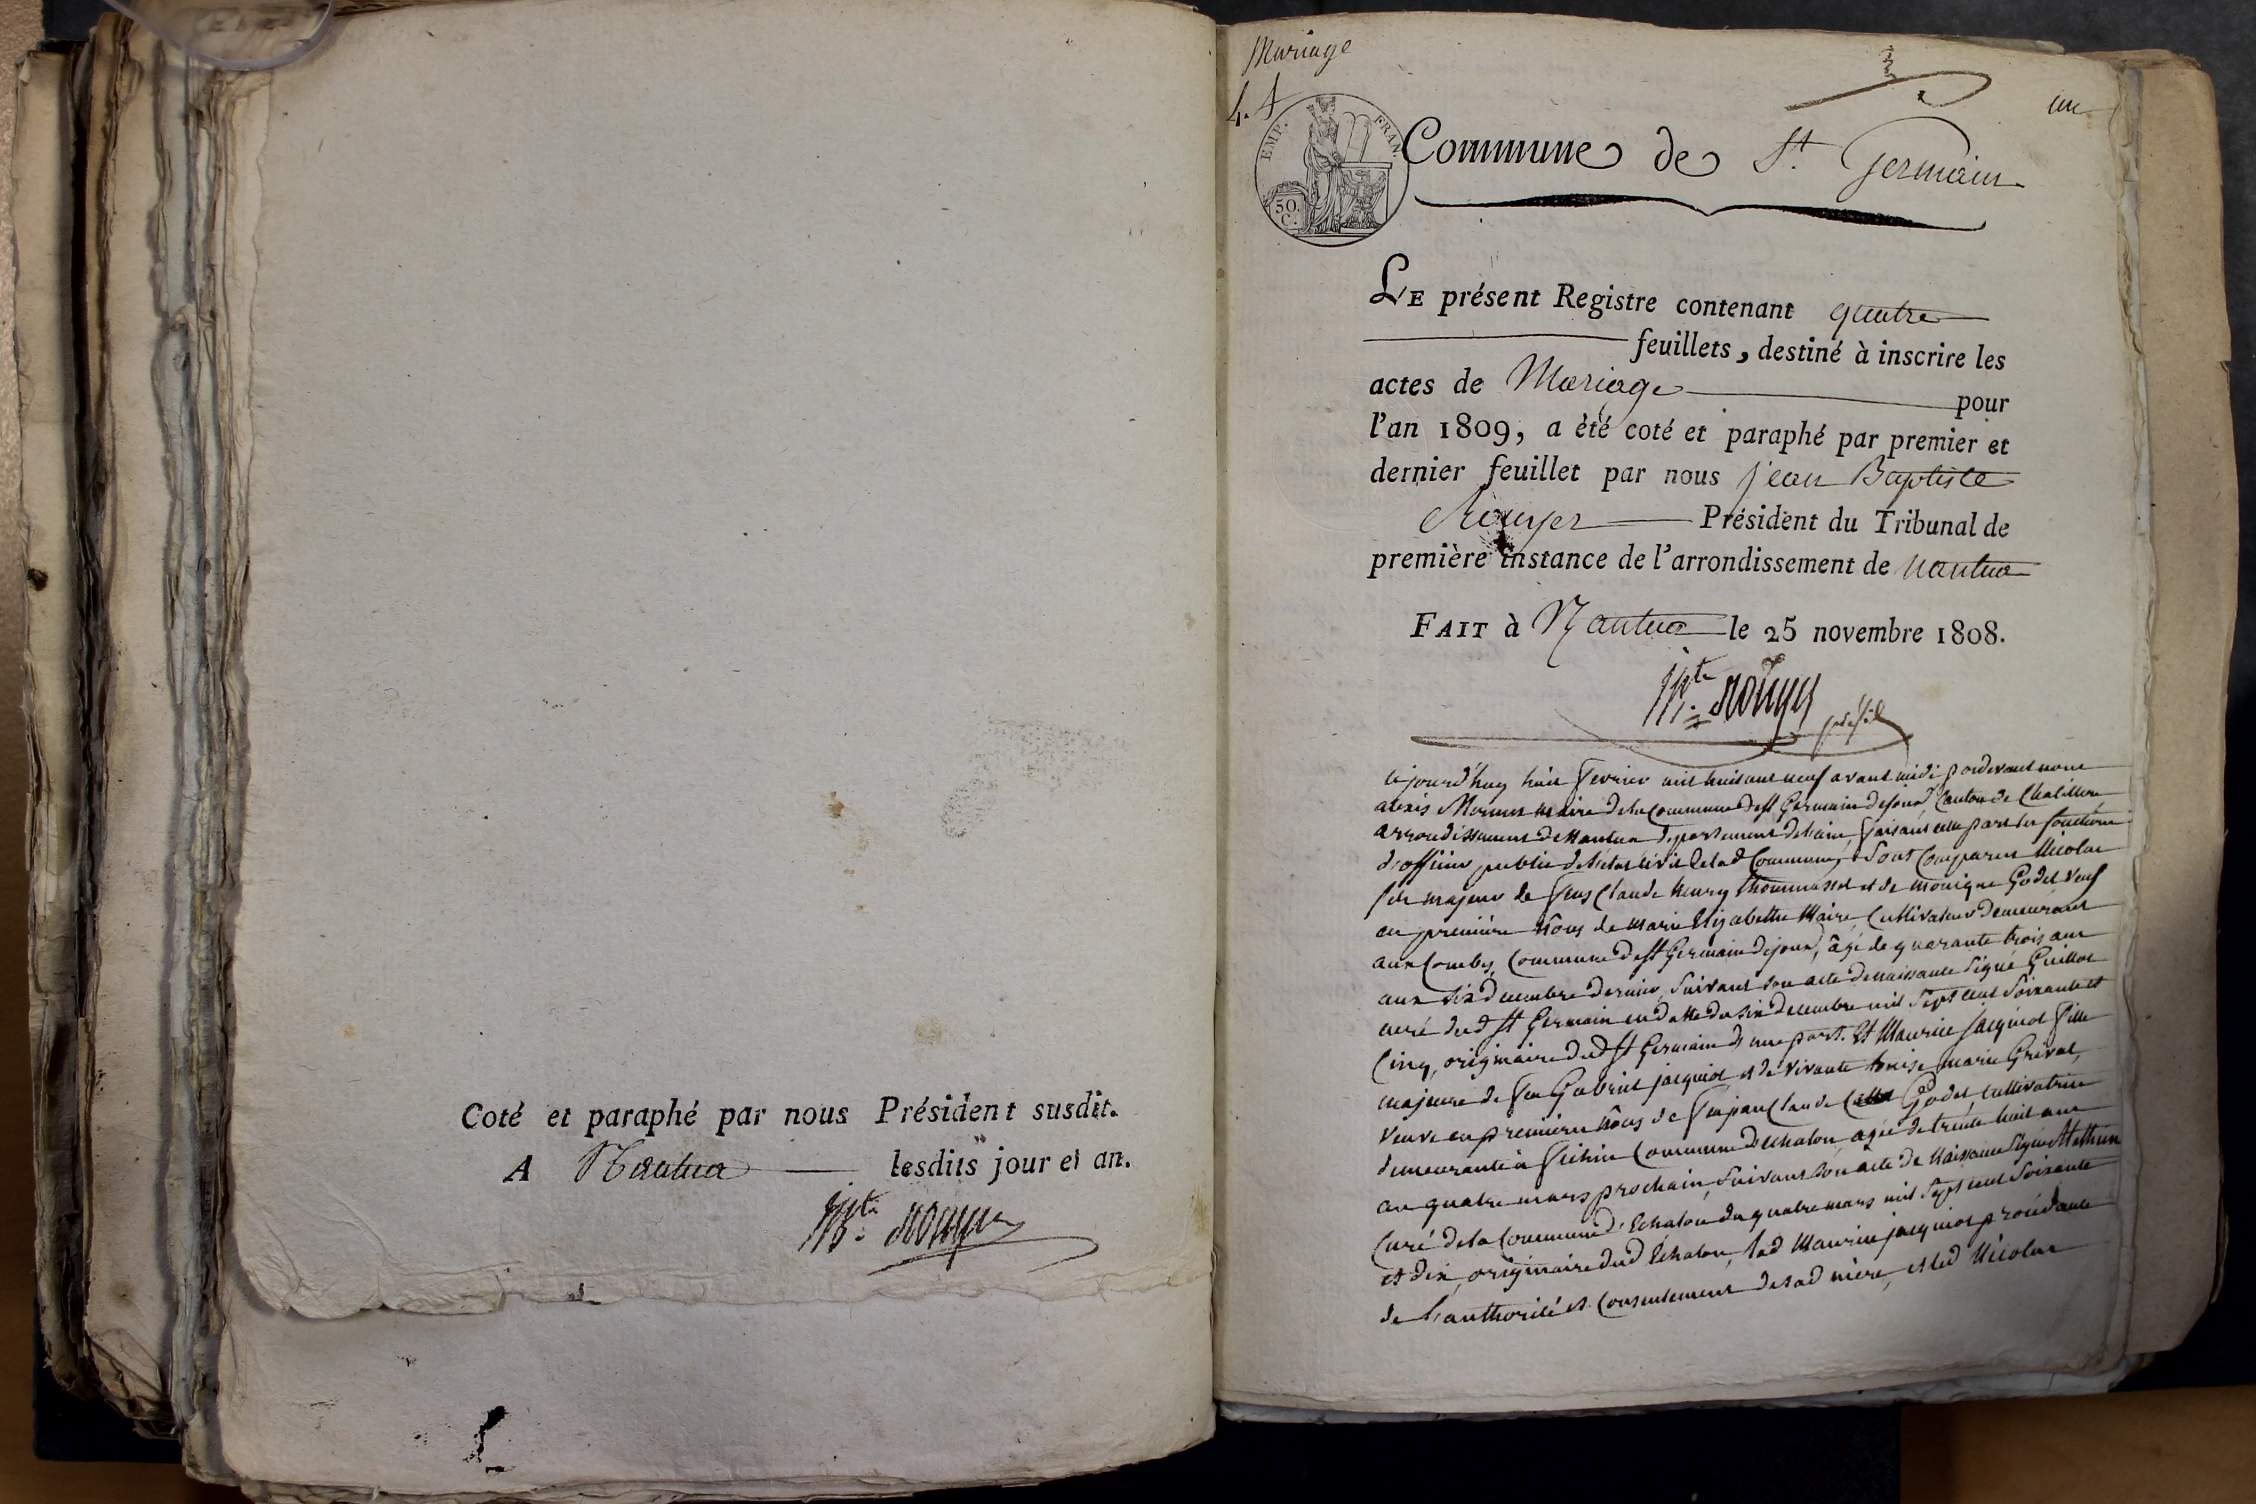 Coté et paraphé par nous Président susdit.
A Nantua lesdits jour et an.
Bte. Rouyer
Mariage
4.
un
EMP. FRAN.
50. C.
Commune de St. Germain
LE présent Registre contenant quatre
feuillets, destiné à inscrire les
actes de Mariage pour
l'an 1809, a été coté et paraphé par premier et
dernier feuillet par nous jean Baptiste
Rouyer Président du Tribunal de
première instance de l'arrondissement de nantua
FAIT à Nantua le 25 novembre 1808.
Bte. Rouyer
cejourd'huy huit fevrier mil huit cent neuf avant midi pardevant nous
alexis maire de la Commune de St Germain de joux Canton de Chatillon
arrondissement de Nantua departement de l'ain, faisant les fonctions
d'officier public de l'etat civil de lad Commune, sont Comparus Nicolas
fils majeur de feus Claude henry thommasset et de monique Godet veuf
en première nôces de marie Elizabethe Maire, Cultivateur demeurant
aux Combes, Commune de St Germain de joux, âgé de quarante trois ans
aux six decembre dernier, suivant son acte de naissance signé Guillot
curé dud St Germain en datte du six decembre mil sept cent soixante et
Cinq, originaire dud St Germain d'une part. Et Maurice jacquiot fille
majeure de feu Gabriel jacquiot et de vivante marie Grivat,
veuve en première nôces de feu jean Claude Godet, cultivatrice
demeurante à Commune dechalon, agée de trente huit ans
au quatre mars prochain, suivant son acte de naissance signé
Curé de la Commune d'Echalon du quatre mars mil sept cent soixante
et dix, originaire dud Echalon, lad Maurice jacquiot procédante
de l'authorité et Consentement de sad mère, et led Nicolas